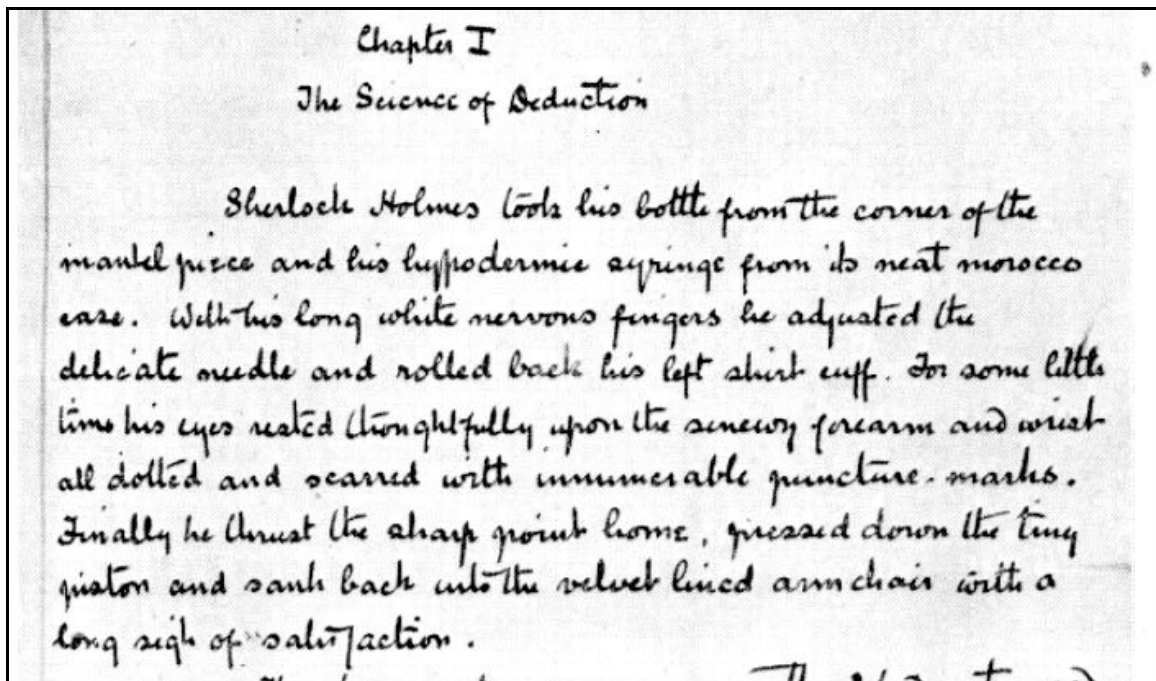 Chapter I
The Science of Deduction
Sherlock Holmes took his bottle from the corner of the
mantel piece and his hypodermic syringe from its neat morocco
case. With his long white nervous fingers he adjusted the
delicate needle and rolled back his left shirt cuff. For some little
time his eyes rested thoughtfully upon the sinewy forearm and wrist
all dotted and scarred with innumerable puncture-marks.
Finally he thrust the sharp point home, pressed down the tiny
piston and sank back into the velvet lined armchair with a
long sigh of satisfaction.